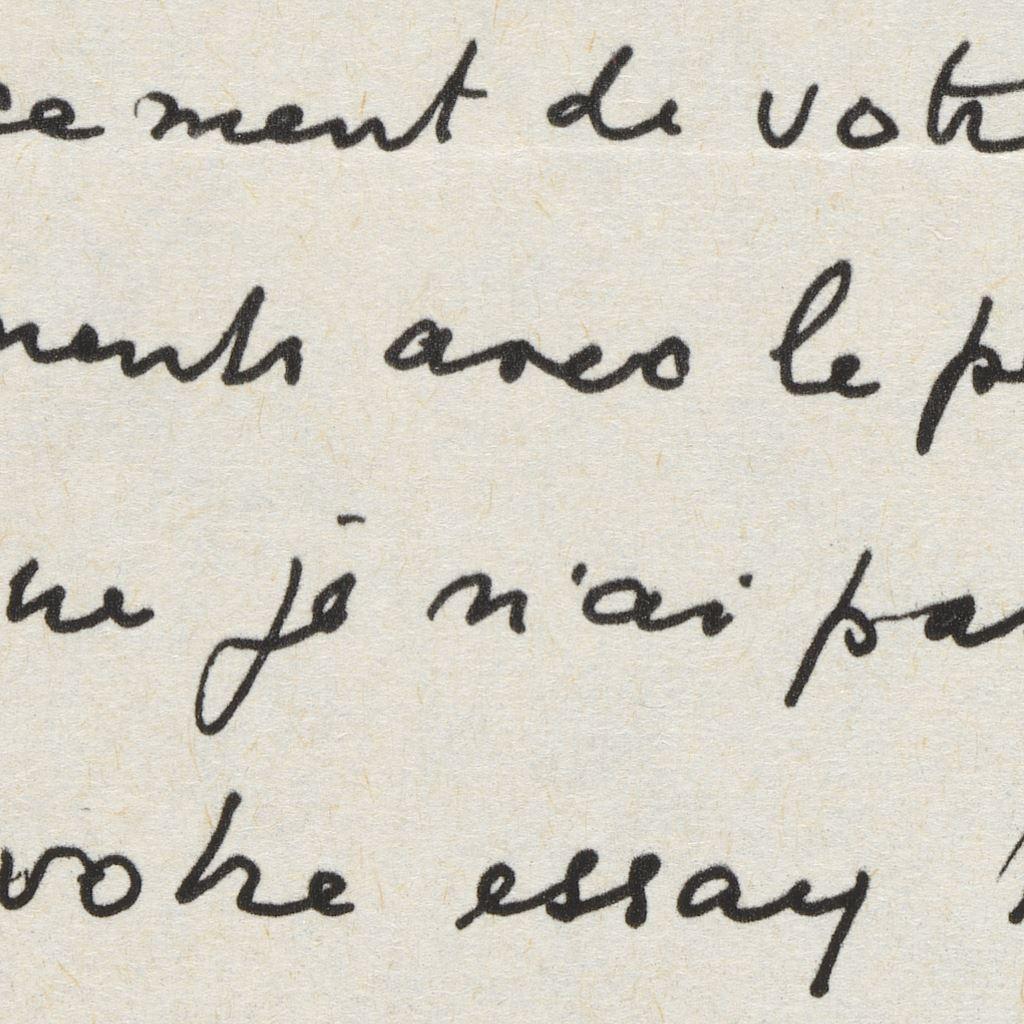 cement de votr
ments avec le pe
ue je n'ai pas
votre essay